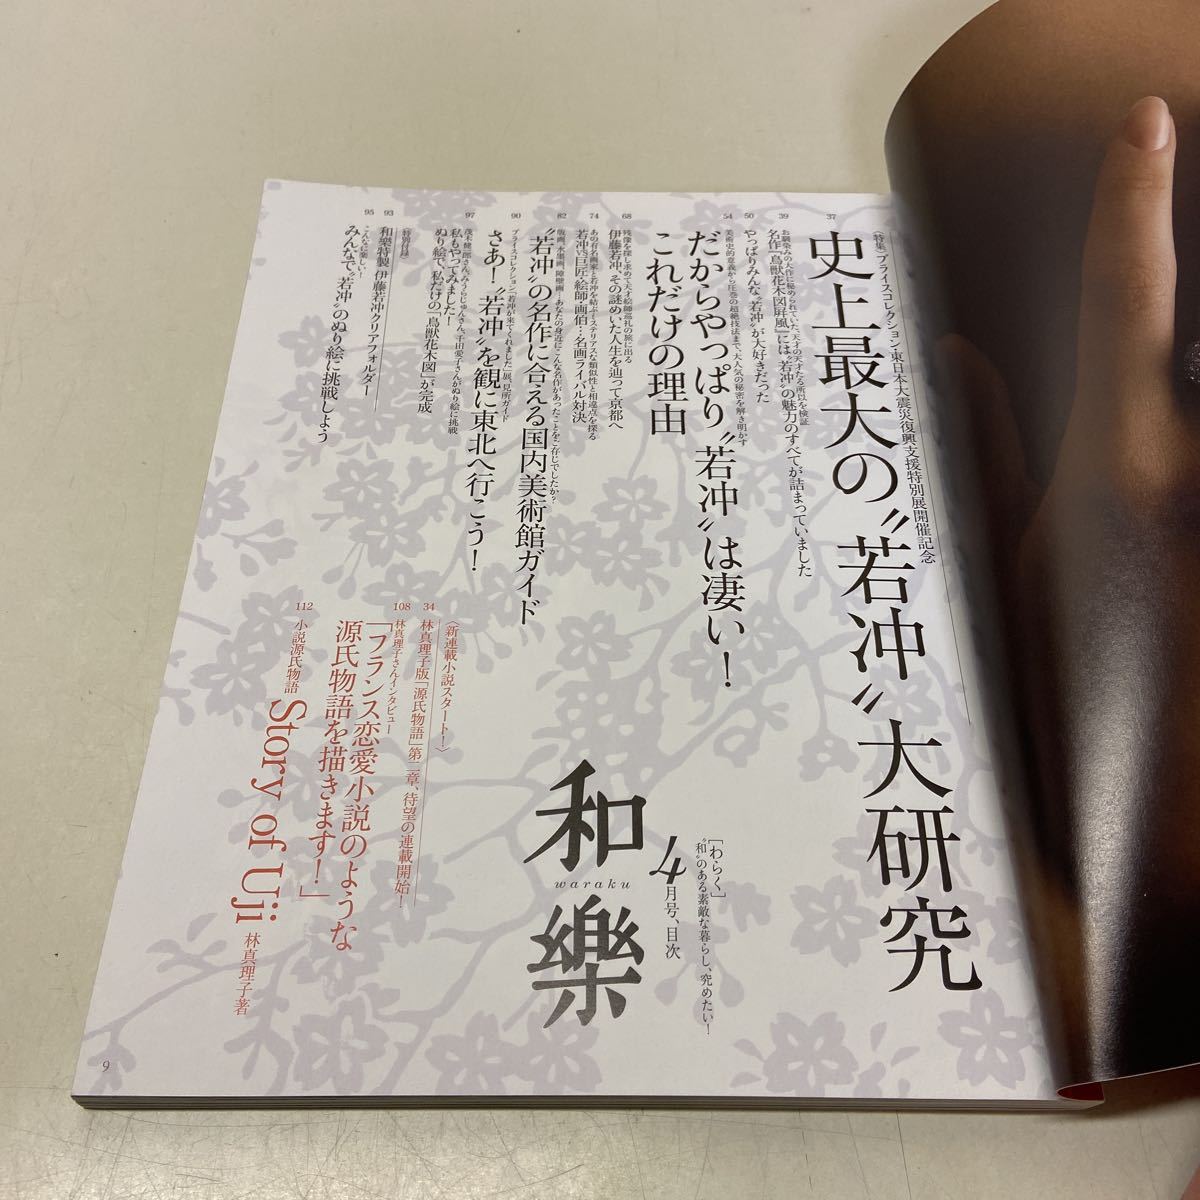 〈特集〉プライスコレクション・東日本大震災復興支援特別展開催記念
37
史上最大の〝若冲〟大研究
39
お馴染みの大作に秘められていた、天才の天才たる所以を検証
名作「鳥獣花木図屛風」には〝若冲〟の魅力のすべてが詰まっていました
50
やっぱりみんな〝若冲〟が大好きだった
54
美術史的意義から圧巻の超絶技法まで、大人気の秘密を解き明かす
だからやっぱり〝若冲〟は凄い!
これだけの理由
68
残像を探し求めて天才絵師巡礼の旅に出る
伊藤若冲、その謎めいた人生を辿って京都へ
74
あの有名画家と若冲を結ぶミステリアスな類似性と相違点を探る
若冲VS巨匠・絵師・画伯…名画ライバル対決
82
版画、水墨画、障壁画…あなたの身近にこんな名作があったことをご存じでしたか?
〝若冲〟の名作に合える国内美術館ガイド
90
プライスコレクション「若冲が来てくれました」展、見所ガイド
さあ!〝若冲〟を観に東北へ行こう!
97
茂木健一郎さん、みうらじゅんさん、千住愛子さんがぬり絵に挑戦
私もやってみました!
ぬり絵で、私だけの「鳥獣花木図」が完成
〈特別付録〉
93
和樂特製 伊藤若冲クリアフォルダー
95
こんなに楽しい!
みんなで〝若冲〟のぬり絵に挑戦しよう
〈新連載小説スタート!〉
34
林真理子版「源氏物語」第二章、待望の連載開始!
108
林真理子さんインタビュー
「フランス恋愛小説のような
源氏物語を描きます!」
112
小説源氏物語 Story of Uji 林真理子著
[わらく]
〝和〟のある素敵な暮らし、究めたい!
4月号、目次
和樂
waraku
9